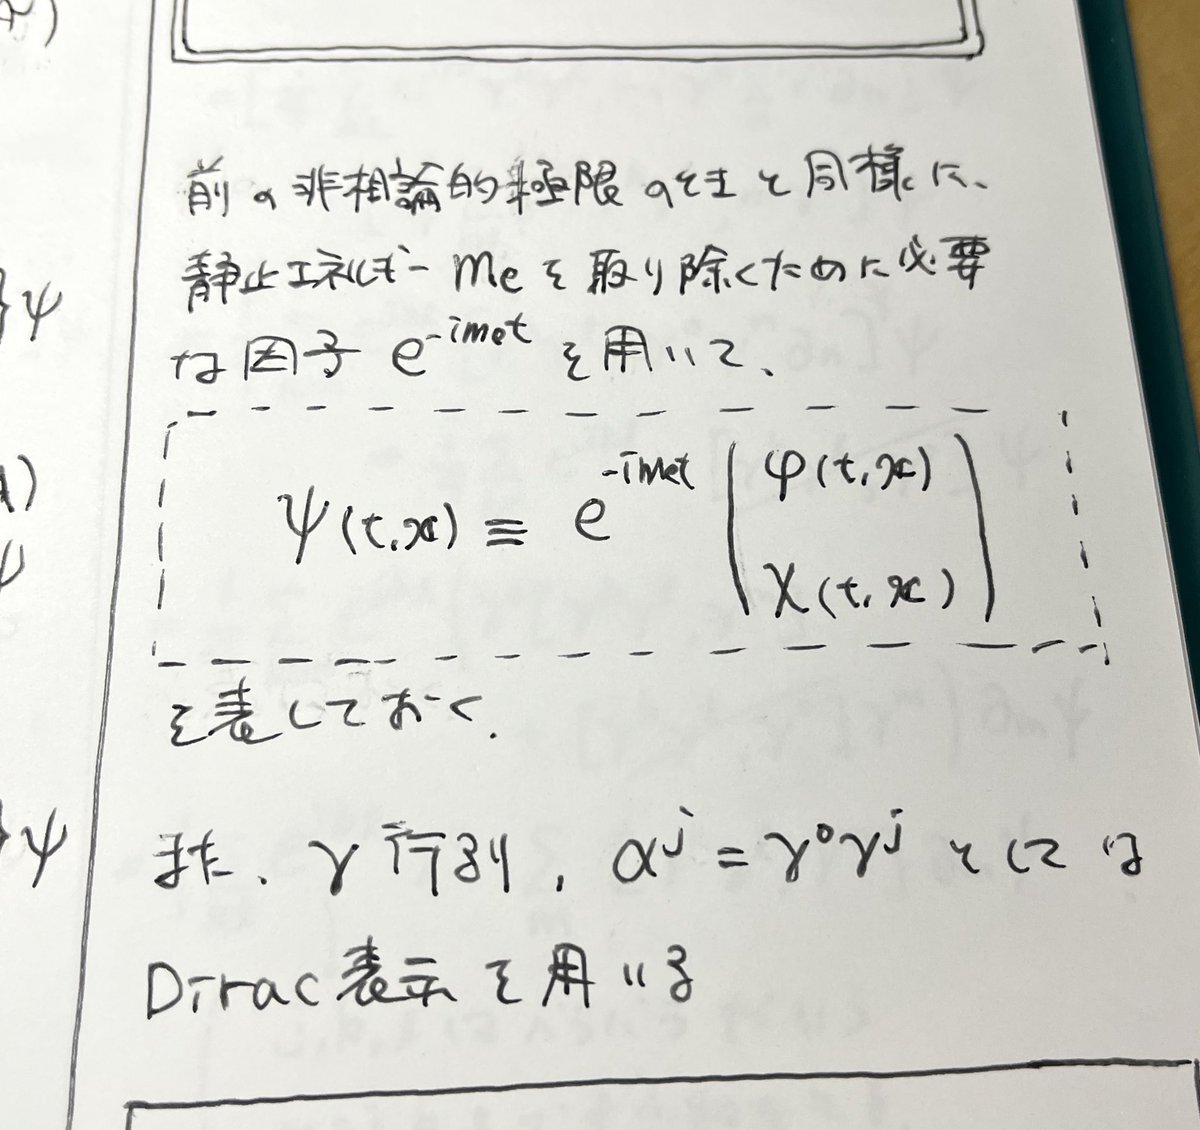 前の非相論的極限のときと同様に、
静止エネルギー me を取り除くために必要
な因子 e^{-imet} を用いて、
ψ(t,x) ≡ e^{-imet} ( φ(t,x)
χ(t,x) )
を表しておく.
また、γ行列, α^j = γ^0γ^j としては
Dirac表示を用いる
}ψ
)
ψ
}ψ